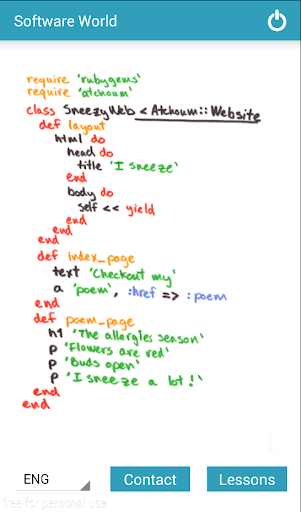 Software World
require 'rubygems'
require 'atchoum'
class SneezyWeb < Atchoum::Website
def layout
html do
head do
title 'I sneeze'
end
body do
self << yield
end
end
end
def index_page
text 'Checkout my'
a 'poem', :href => :poem
end
def poem_page
h1 'The allergies season'
p 'Flowers are red'
p 'Buds open'
p 'I sneeze a lot!'
end
end
ENG
Contact
Lessons
free for personal use